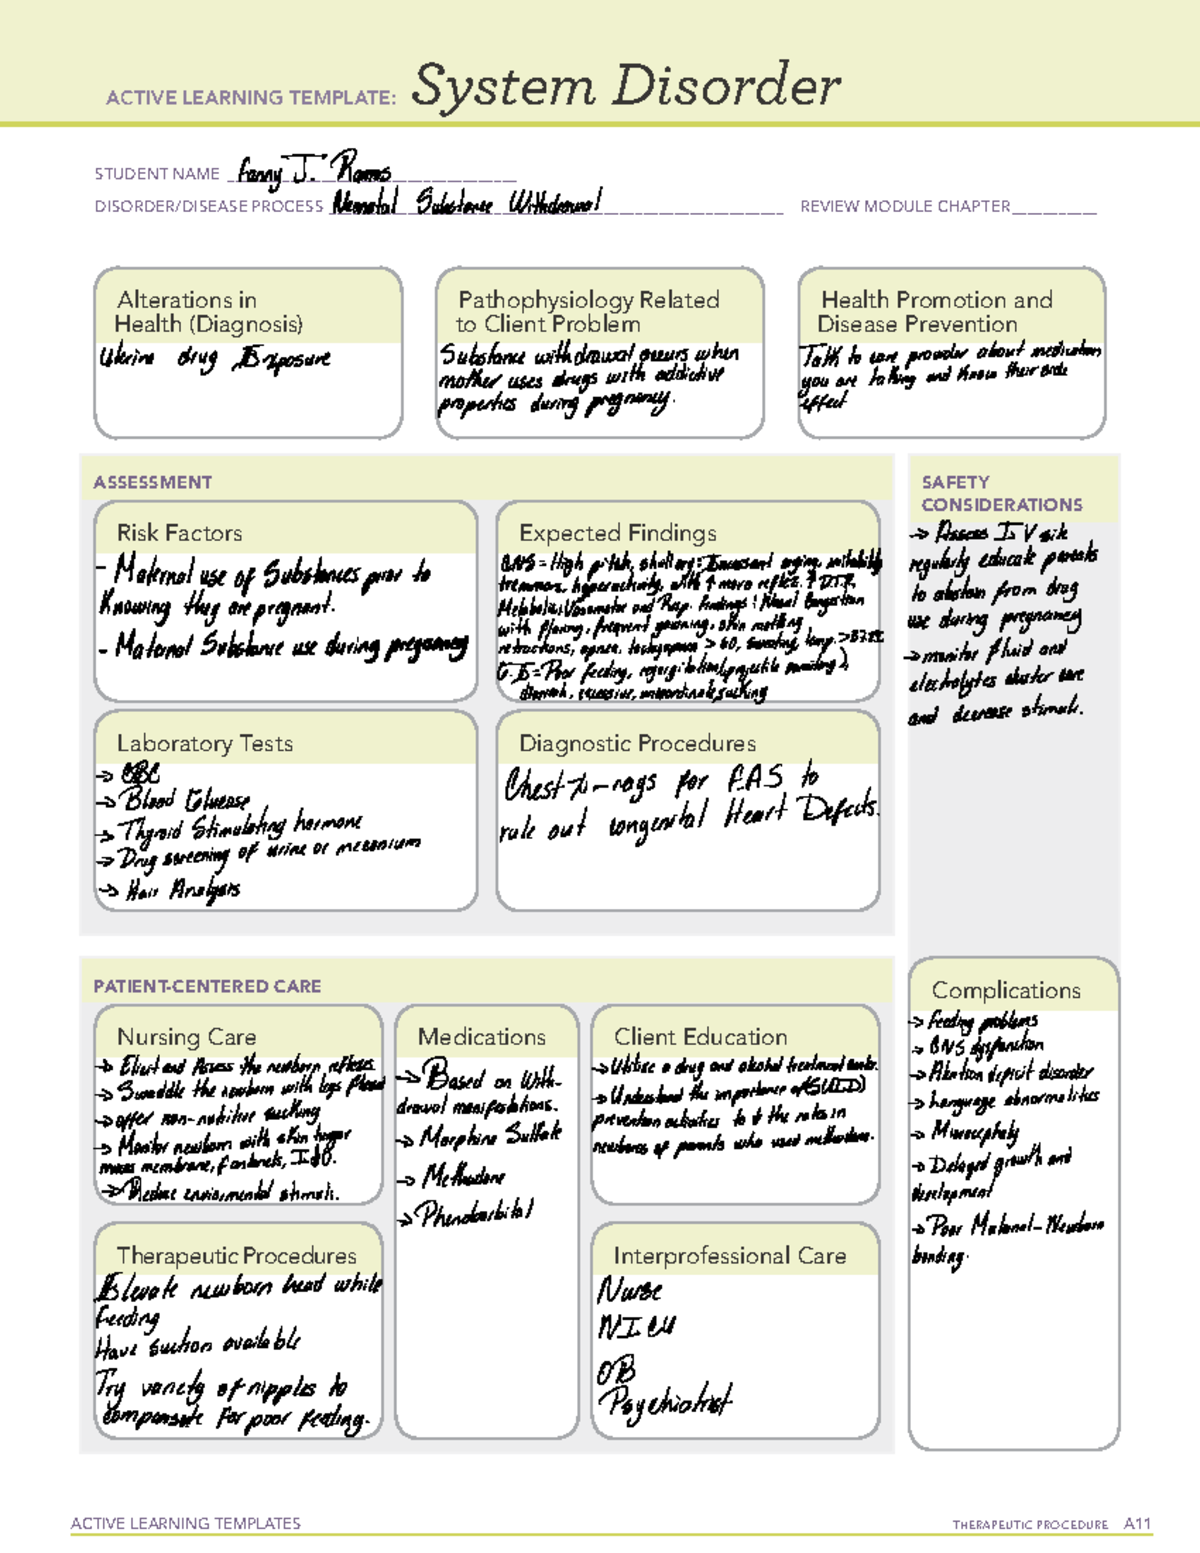 ACTIVE LEARNING TEMPLATE: System Disorder
STUDENT NAME Fanny J. Ramos
DISORDER/DISEASE PROCESS Neonatal Substance Withdrawal REVIEW MODULE CHAPTER
Alterations in
Health (Diagnosis)
Uterine drug Exposure
Pathophysiology Related
to Client Problem
Substance withdrawal occurs when
mother uses drugs with addictive
properties during pregnancy.
Health Promotion and
Disease Prevention
Talk to care provider about medication
you are talking and know their side
effect
ASSESSMENT
Risk Factors
- Maternal use of Substances prior to
Knowing they are pregnant.
- Maternal Substance use during pregnancy
Expected Findings
CNS = High pitch, shrill cry: Incessant crying, irritability
tremmors, hyperactivity, with ↑ moro reflex. ↑ D.T.R
Metabolic, Vasomotor and Resp. findings: Nasal Congestion
with flaring, frequent yawning, skin mottling
retractions, apnea, tachypnea > 60, sweating, temp. >37.2C
G.I = Poor feeding, regurgitation (projectile vomiting),
diarrhea, excessive, uncoordinate, sucking
Laboratory Tests
→ CBC
→ Blood Glucose
→ Thyroid Stimulating hormone
→ Drug screening of urine or meconium
→ Hair Analysis
Diagnostic Procedures
Chest x-rays for F.A.S to
rule out congenital Heart Defects.
SAFETY
CONSIDERATIONS
→ Assess IV site
regularly educate parents
to abstain from drug
use during pregnancy
→ monitor fluid and
electrolytes cluster care
and decrease stimuli.
PATIENT-CENTERED CARE
Nursing Care
→ Elicit and Assess the newborn reflexes
→ Swaddle the newborn with legs flexed
→ offer non-nutritive sucking
→ Monitor newborn with skin turgor
mucus membrane, fontanels, I&O.
→ Reduce enviormental stimuli.
Medications
→ Based on With-
drawal manifestations.
→ Morphine Sulfate
→ Methadone
→ Phenobarbital
Client Education
→ Utilize a drug and alcohol treatment center.
→ Understand the importance of (SUID)
prevention activities to ↓ the rates in
newborns of parents who used methadone.
Therapeutic Procedures
Elevate newborn head while
Feeding
Have suction available
Try variety of nipples to
compensate for poor feeding.
Interprofessional Care
Nurse
NICU
OB
Psychiatrist
Complications
→ Feeding problems
→ CNS dysfunction
→ Attention deficit disorder
→ Language abnormalities
→ Microcephaly
→ Delayed growth and
development
→ Poor Maternal-Newborn
bonding.
ACTIVE LEARNING TEMPLATES
THERAPEUTIC PROCEDURE A11